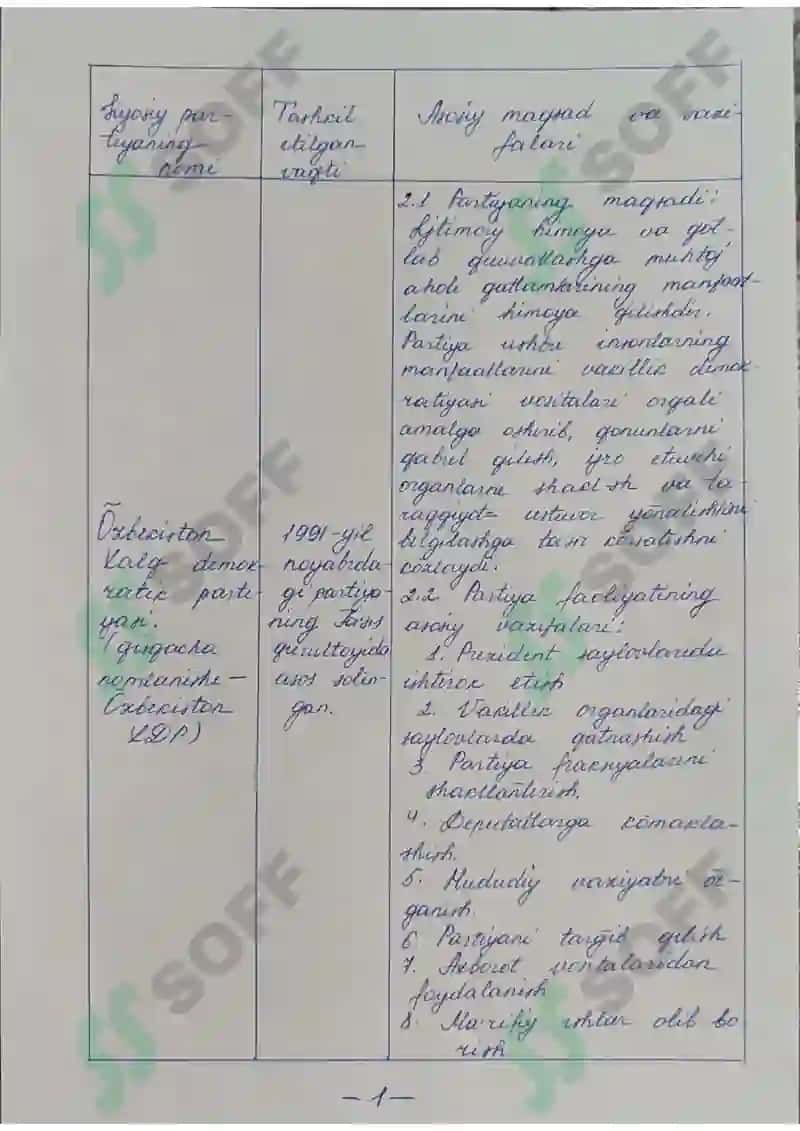 Siyosiy par-
tiyaning
nomi
Tashkil
etilgan
vaqti
Asosiy maqsad va vazi-
falari
O̅zbekiston
Xalq demok-
ratik parti-
yasi.
(qisqacha
nomlanishi —
O̅zbekiston
XDP)
1991-yil
noyabrda-
gi partiya-
ning Ta'sis
qurultoyida
asos solin-
gan.
2.1 Partiyaning maqsadi:
Ijtimoiy himoya va qo'l-
lab quvvatlashga muhtoj
aholi qatlamlarining manfaat-
larini himoya qilishdir.
Partiya ushbu insonlarning
manfaatlarini vakillik demok-
ratiyasi vositalari orqali
amalga oshirib, qonunlarni
qabul qilish, ijro etuvchi
organlarni shakl-sh va ta-
raqqiyot= ustuvor yo̅nalishini
bilgilashga tasir ko̅rsatishni
ko̅zlaydi.
2.2 Partiya faoliyatining
asosiy vazifalari:
1. Prezident saylovlarida
ishtirok etish
2. Vakillik organlaridagi
saylovlarda qatnashish
3. Partiya fraksiyalarini
shakllantirish.
4. Deputatlarga ko̅makla-
shish.
5. Hududiy vaziyatni o̅r-
ganish
6. Partiyani targ̅ib qilish
7. Axborot vositalaridan
foydalanish
8. Ma'rifiy ishlar olib bo
rish
— 1 —
SOFF
SOFF
SOFF
SOFF
SOFF
SOFF